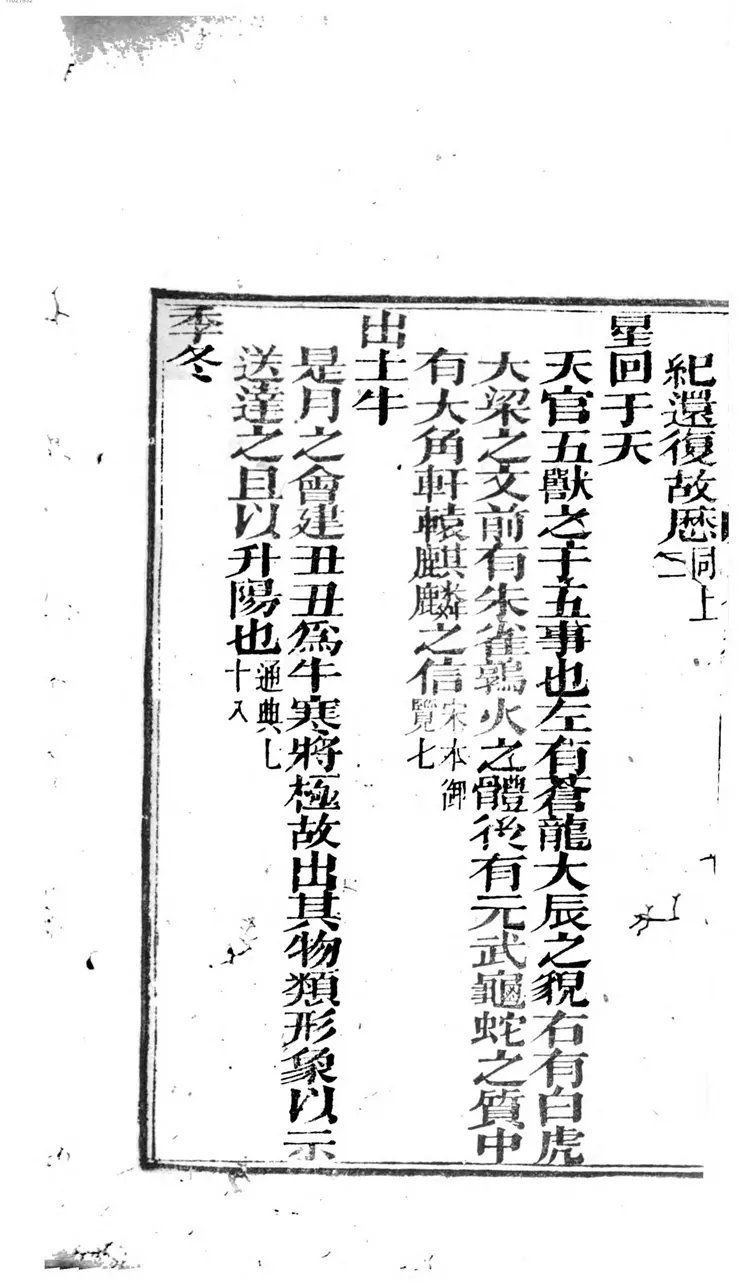 紀還復故厯同上
星回于天
天官五獸之于五事也左有蒼龍大辰之貌右有白虎
大梁之文前有朱雀鶉火之體後有元武龜蛇之質中
有大角軒轅麒麟之信宋本御覽七
出土牛
是月之會建丑丑爲牛寒將極故出其物類形象以示
送達之且以升陽也通典七十八
季冬